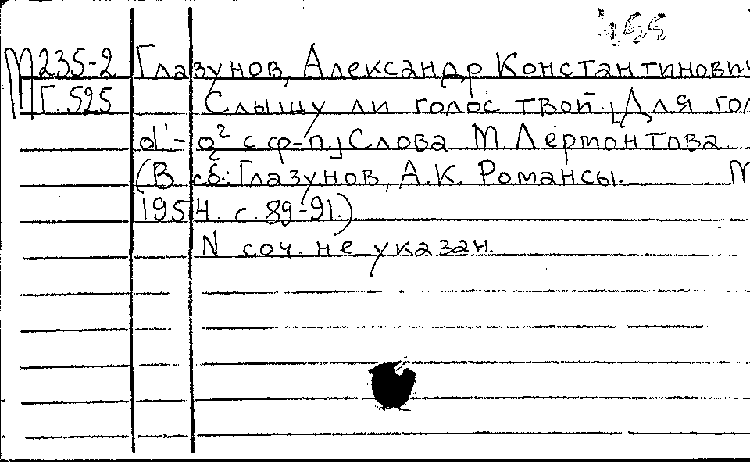 455
М235-2 Глазунов, Александр Константинович
Г.525 Слышу ли голос твой. [Для гол
d¹-g² с ф-п] Слова М Лермонтова
(В сб: Глазунов, А.К. Романсы. М
1954. с. 89-91.)
N соч. не указан.